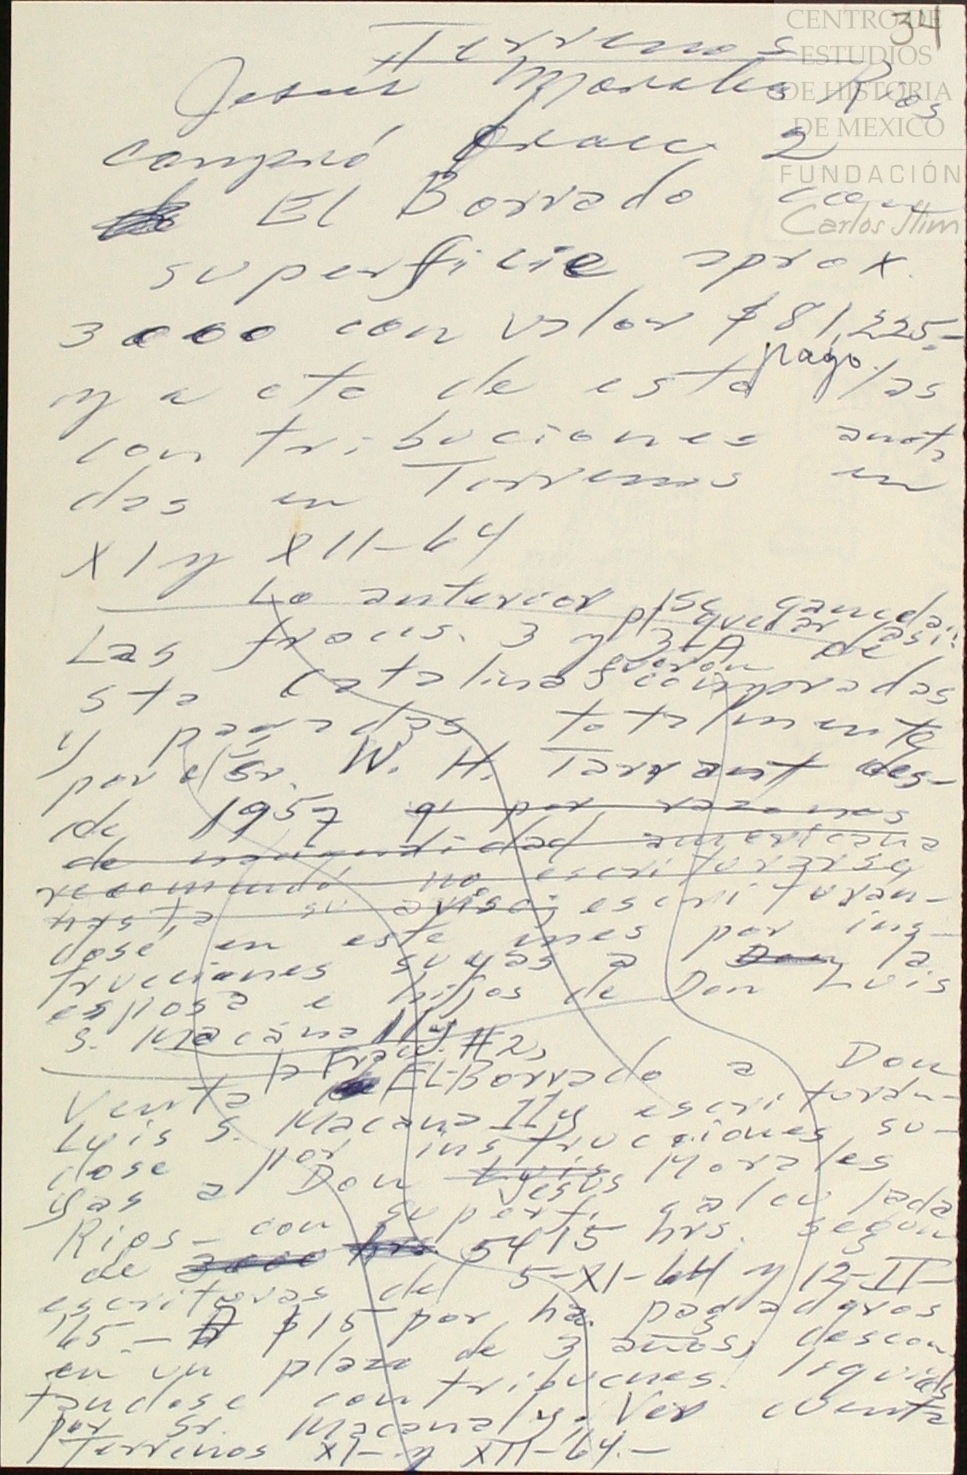 34
CENTRO DE
ESTUDIOS
DE HISTORIA
DE MEXICO
FUNDACIÓN
Carlos Slim
Terrenos
Jesus Morales Rios
compró fracc. 2
El Borrado con
superficie aprox.
3000 con valor $81,225.-
pago
y a cta de esta las
contribuciones anota
das en Terrenos en
XI y XII-64
Lo anterior se cancela
p/ quedar así:
Las fraccs. 3 y 3-A de
Sta Catalina fueron compradas
y pagadas totalmente
por el Sr. W. H. Tarrant des-
de 1957 q' por razones
de americana
recomendó no escriturarse
hasta su aviso; escrituran-
dose en este mes por ins-
trucciones suyas a la
esposa e hijos de Don Luis
S. Macanally.
Venta la Fracc. #2, El Borrado a Don
Luis S. Macanally escriturán-
dose por instrucciones su-
yas a Don Luis Jesús Morales
Rios - con superf. calculada
de 3000 hrs 5415 hrs. según
escrituras del 5-XI-64 y 12-II-
65 - A $15 por ha. pagaderos
en un plazo de 3 años, descon
tandose contribucnes. liquids
por Sr. Macanally. Ver cuenta
Terrenos XI- y XII-64.-